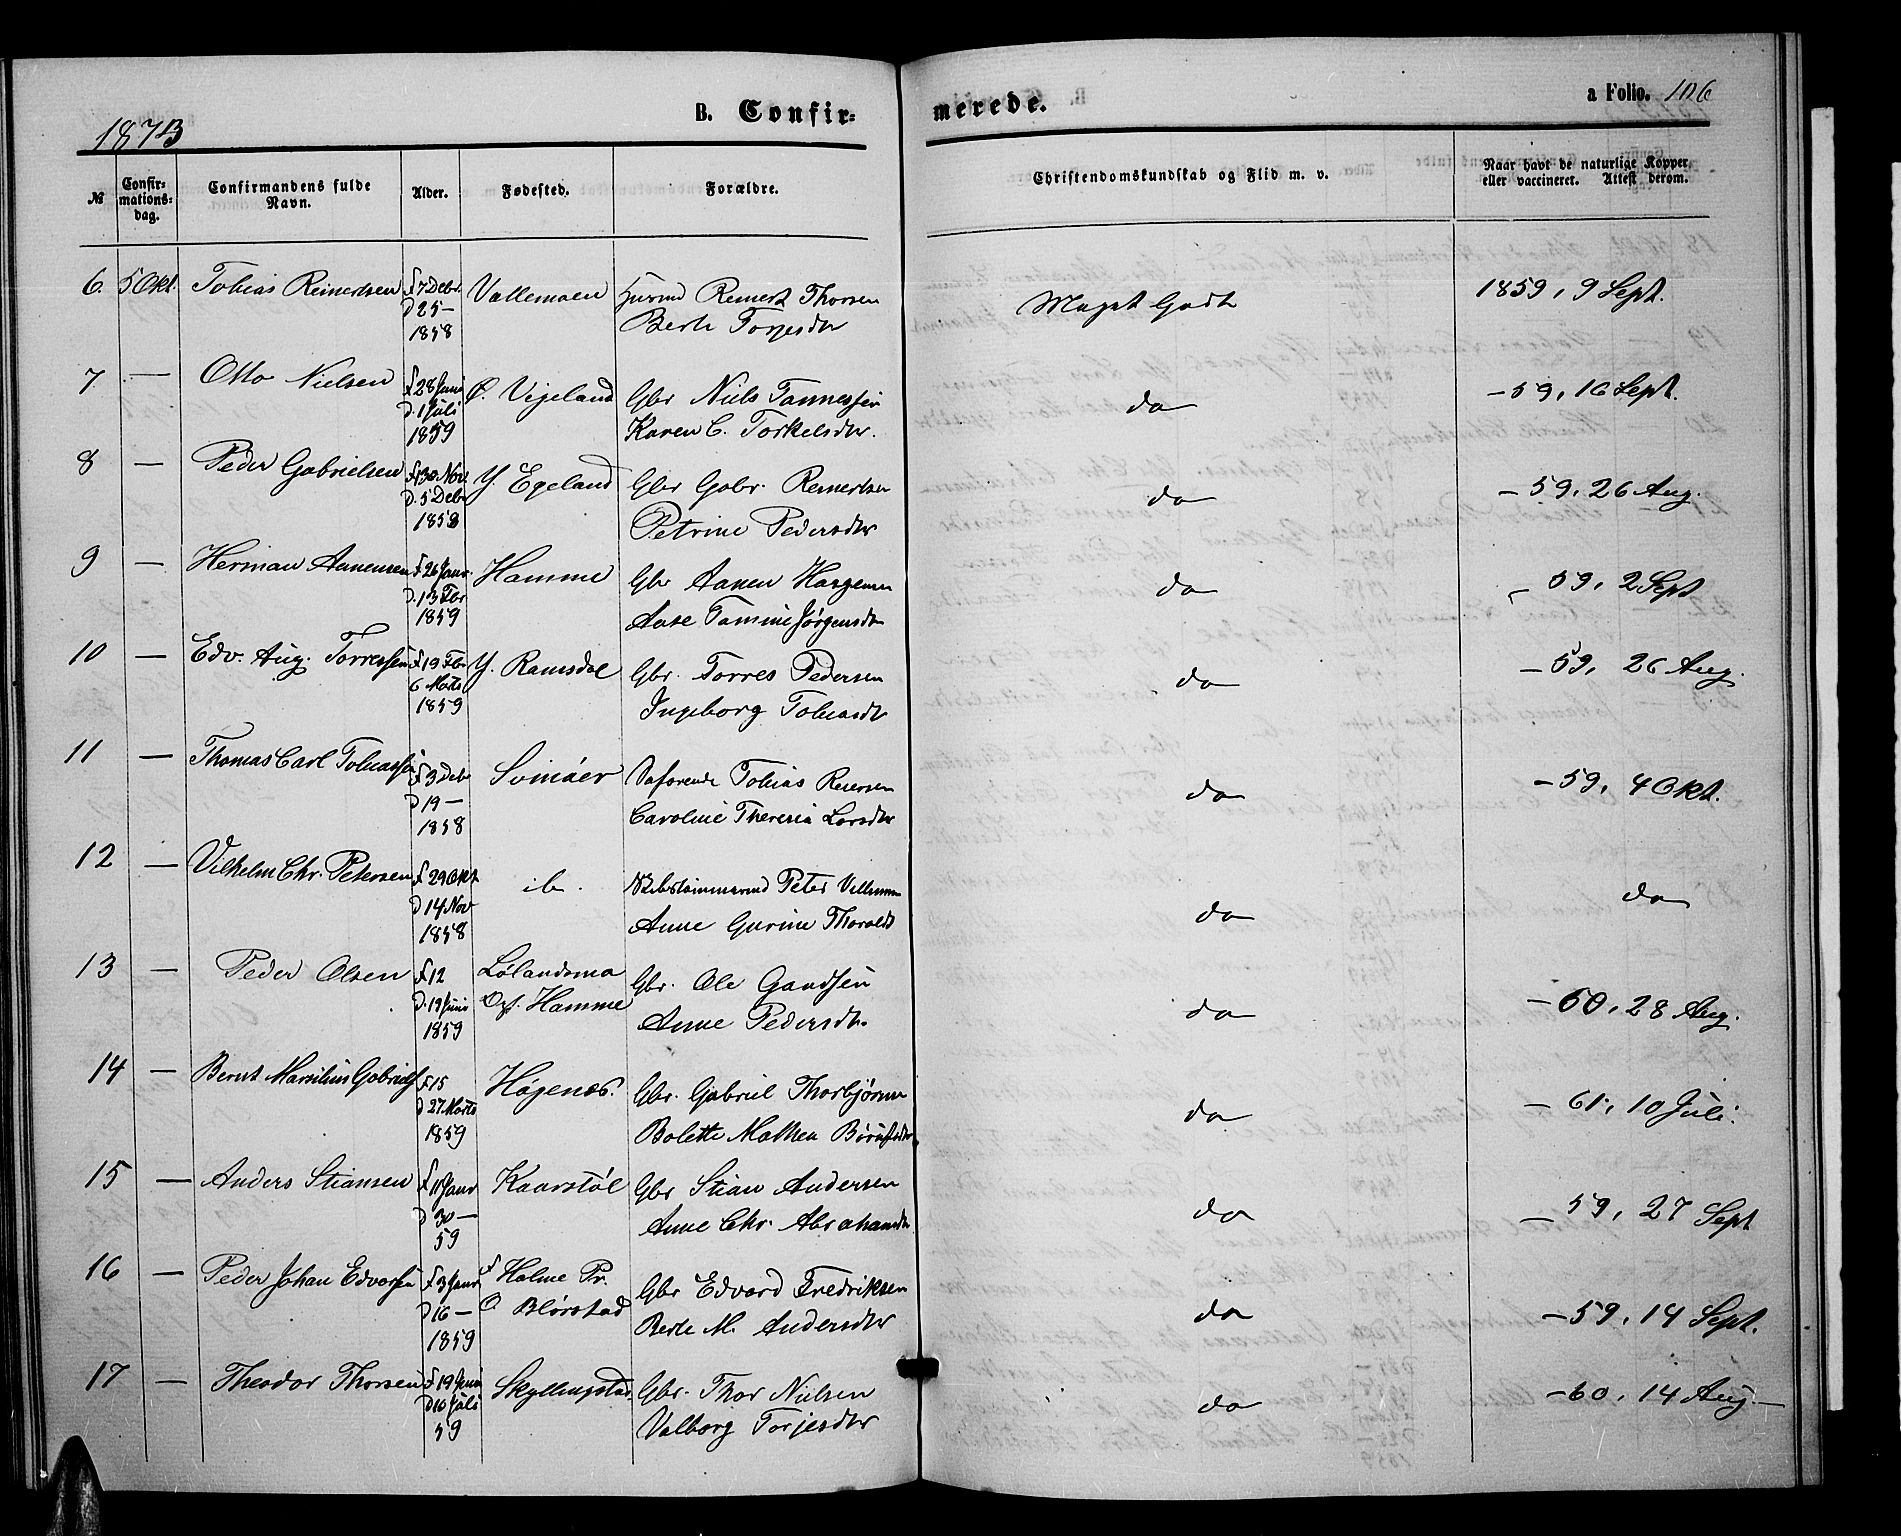 B. Confir=
merede.
a Folio. 106
1873
№
Confir=
mations=
dag.
Confirmandens fulde
Navn.
Alder.
Fødested.
Forældre.
Christendomskundskab og Flid m. v.
Naar havt de naturlige Kopper,
eller vaccineret. Attest derom.
6. 5 Okt. Tobias Reinertsen f 7 Debr Vallemoen Huusmd Reinert Thorsen Meget Godt 1859, 9 Sept.
D 25 — Berte Torjesdtr
1858
7 — Otto Nielsen f 28 Juni Ø. Vigeland Gbr Niels Tønnessen do — 59, 16 Sept.
d. 1 Juli Karen C. Torkelsdtr.
1859
8 — Peder Gabrielsen f 30 Nov. Y. Egeland Gbr Gabr. Reinertsen do — 59, 26 Aug.
D. 5 Debr Petrine Pedersdtr
1858
9 — Herman Aanensen f 26 Janr. Hamme Gbr Aanen do — 59, 2 Sept
D. 13 Fbr Aase Tomine Jørgensdtr
1859
10 — Edv. Aug. Torressen f 19 Fbr Y. Ramsdal Gbr. Torres Pedersen do — 59, 26 Aug.
6 Marts Ingeborg Tobiasdtr
1859
11 — Thomas Carl Tobiassen f 3 Debr Svinøer Tobias Reiersen do — 59, 4 Okt.
D 19 — Caroline Theresia Larsdtr
1858
12 — Vilhelm Chr. Petersen f 29 Okt ib. Peter do do
D 14 Nov Anne Gurine Thoralds
1858
13 — Peder Olsen f 12 Lølandsmo Gbr. Ole do — 60, 28 Aug.
D. 19 Juni Opf. Hamme Anne Pedersdtr.
1859
14 — Bernt Gabriels f 15 Høgenæs. Gbr. Gabriel Thorbjørns do — 61, 10 Juli.
D 27 Marts Bolette
1859
15 — Anders Stiansen f 11 Janr Kaarstøl Gbr Stian Andersen do — 59, 27 Sept
D 30 — Anne Chr. Abrahamsdtr
59
16 — Peder Johan Edvarsen f 3 Janr f Holme Pr. Gbr Edvard Fredriksen do — 59, 14 Sept.
D 16 — O Blørstad Berte M. Andersdtr
1859
17 — Theodor Thorsen f 19 Juni Skyllingstad Gbr. Thor Nielsen do — 60, 14 Aug. —
D 10 Juli Valborg Torjesdtr
59